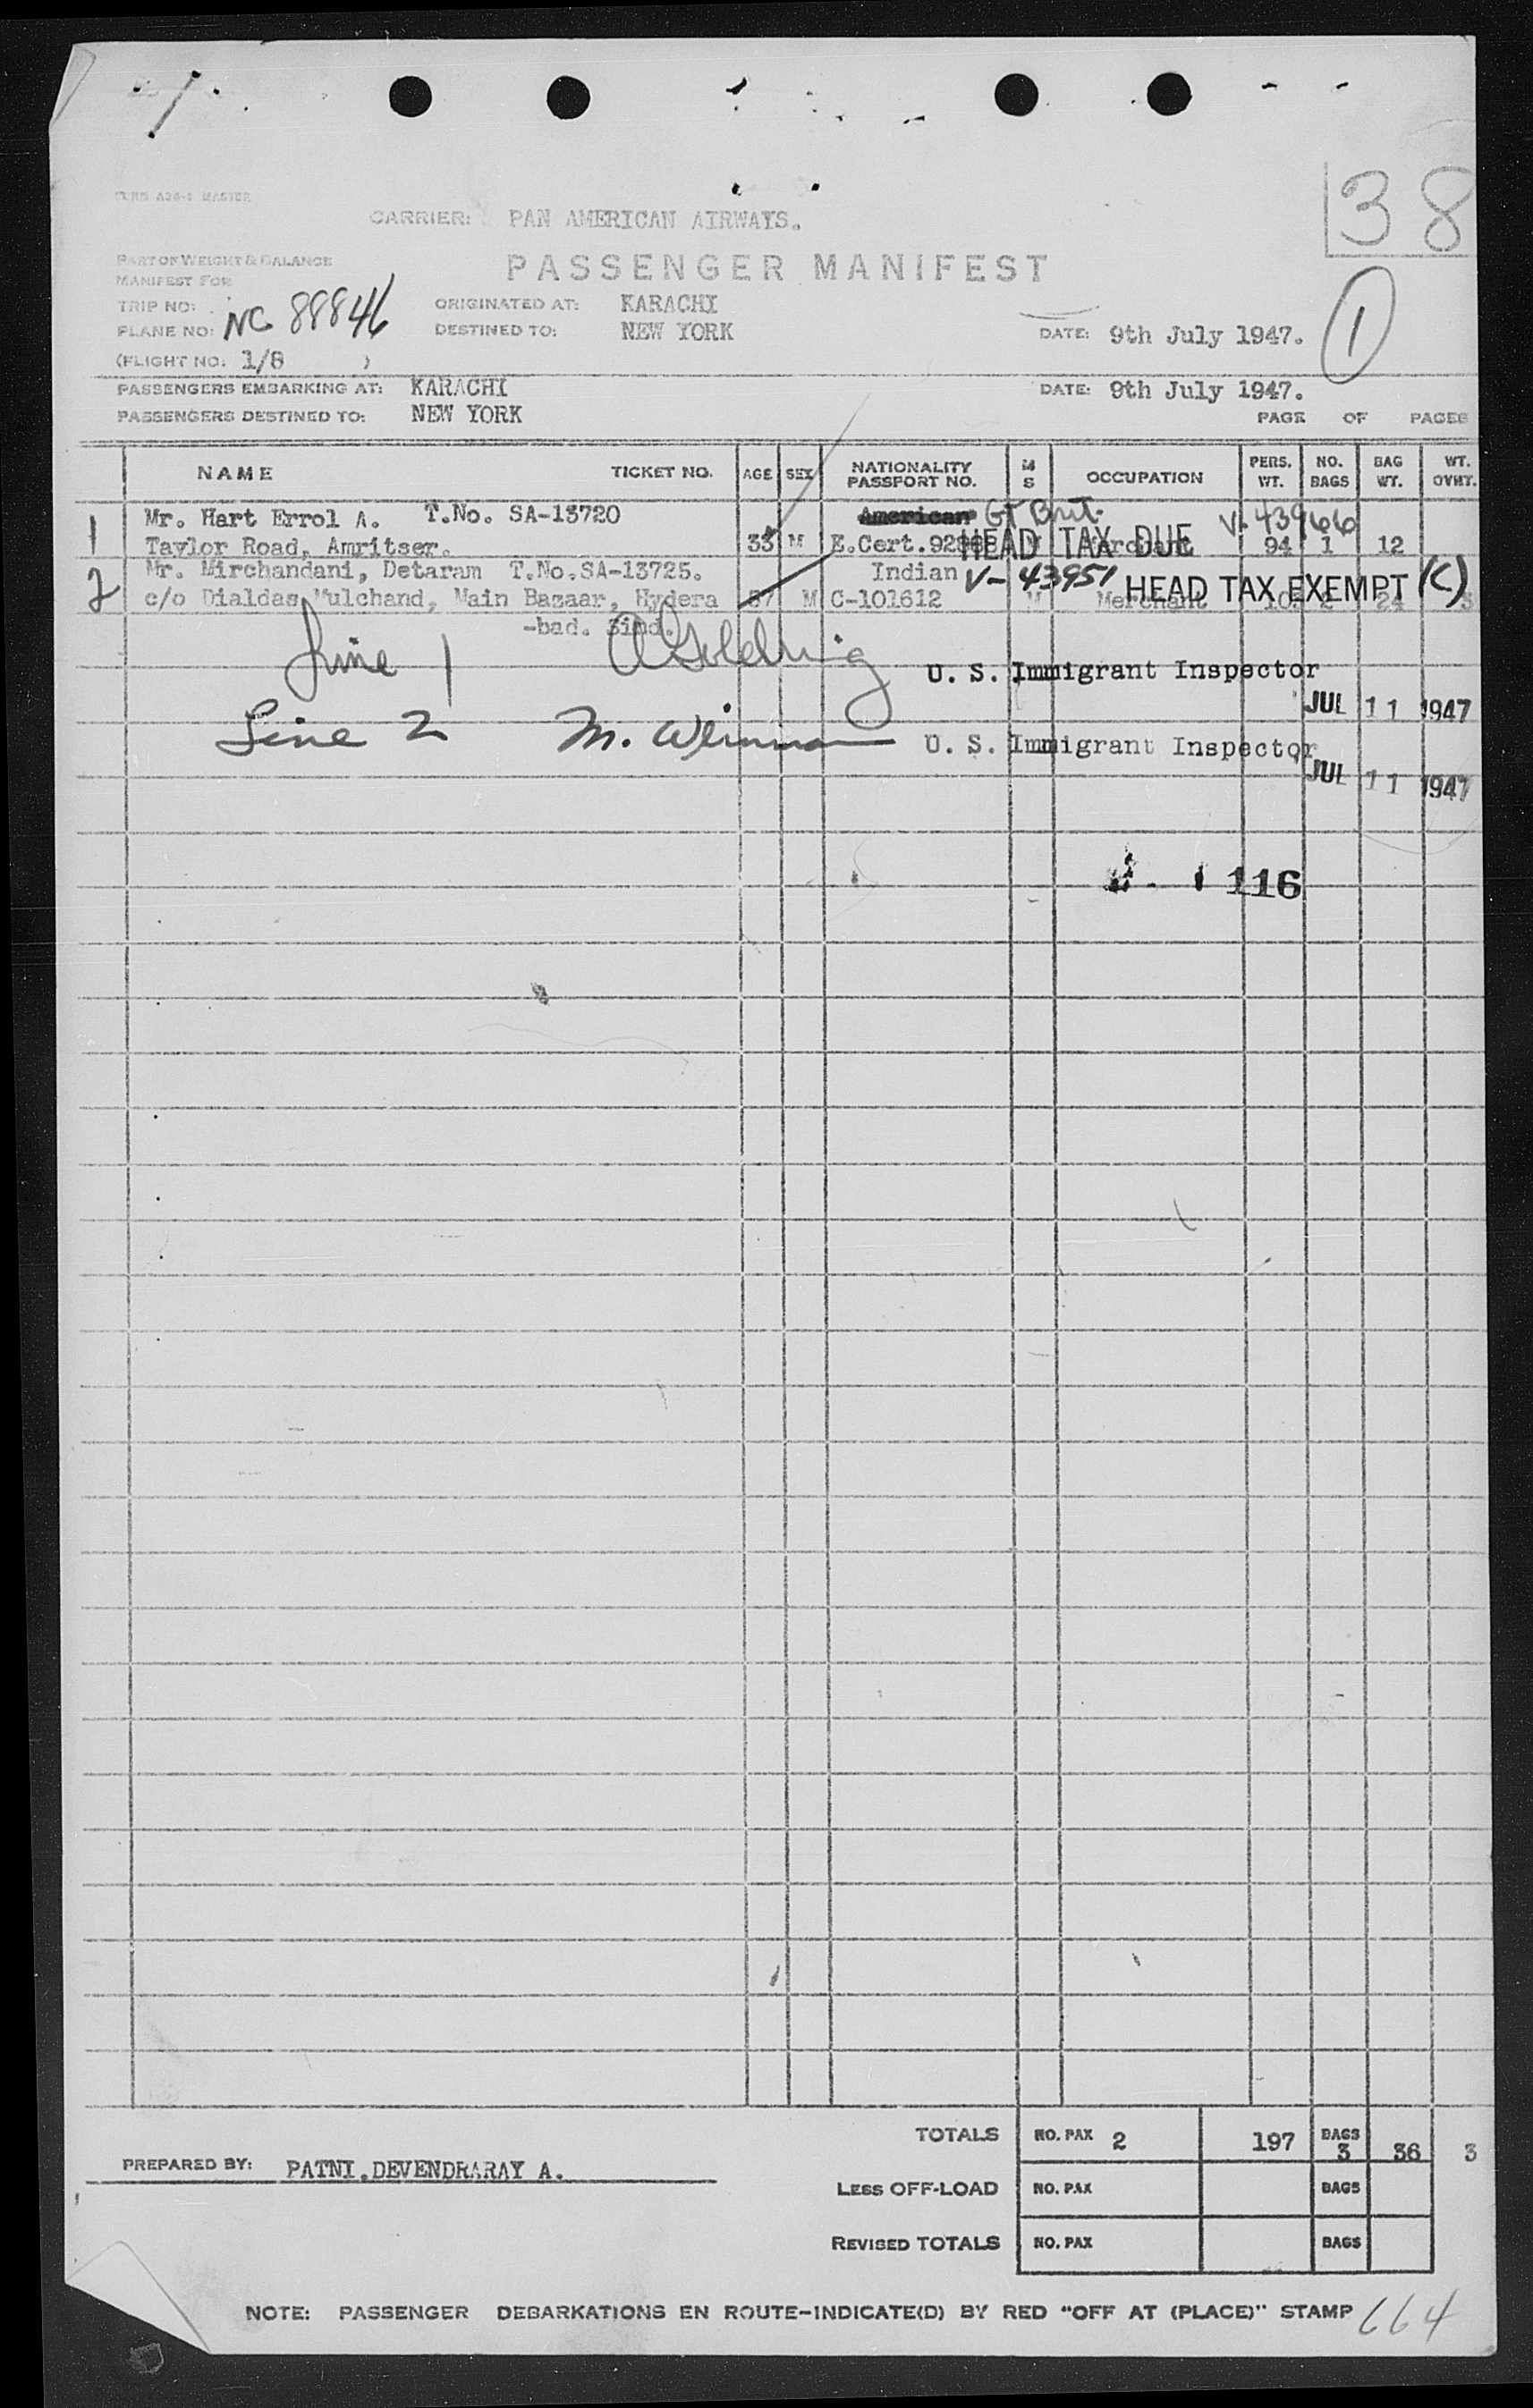 38
CARRIER: PAN AMERICAN AIRWAYS.
PART OF WEIGHT & BALANCE
PASSENGER MANIFEST
MANIFEST FOR
TRIP NO:
ORIGINATED AT: KARACHI
PLANE NO: NC 88846
DESTINED TO: NEW YORK
DATE: 9th July 1947.
1
(FLIGHT NO: 1/8 )
PASSENGERS EMBARKING AT: KARACHI
DATE: 9th July 1947.
PASSENGERS DESTINED TO: NEW YORK
PAGE OF PAGES
NAME TICKET NO. AGE SEX NATIONALITY PASSPORT NO. M S OCCUPATION PERS. WT. NO. BAGS BAG WT. WT. OVHT.
1 Mr. Hart Errol A. T.No. SA-13720 American Gt Brit. V-43966
Taylor Road, Amritser. 33 M E.Cert. HEAD TAX DUE 94 1 12
2 Mr. Mirchandani, Detaram T.No.SA-13725. Indian V-43951 HEAD TAX EXEMPT (C)
c/o Dialdas Mulchand, Main Bazaar, Hydera 37 M C-101612 M Merchant 103 2 24 3
-bad. Sind.
Line 1 A Goldring U. S. Immigrant Inspector
JUL 11 1947
Line 2 M. Weinman U. S. Immigrant Inspector
JUL 11 1947
116
TOTALS NO. PAX 2 197 BAGS 3 36 3
PREPARED BY: PATNI.DEVENDRARAY A.
LESS OFF-LOAD NO. PAX BAGS
REVISED TOTALS NO. PAX BAGS
NOTE: PASSENGER DEBARKATIONS EN ROUTE-INDICATE(D) BY RED "OFF AT (PLACE)" STAMP
664